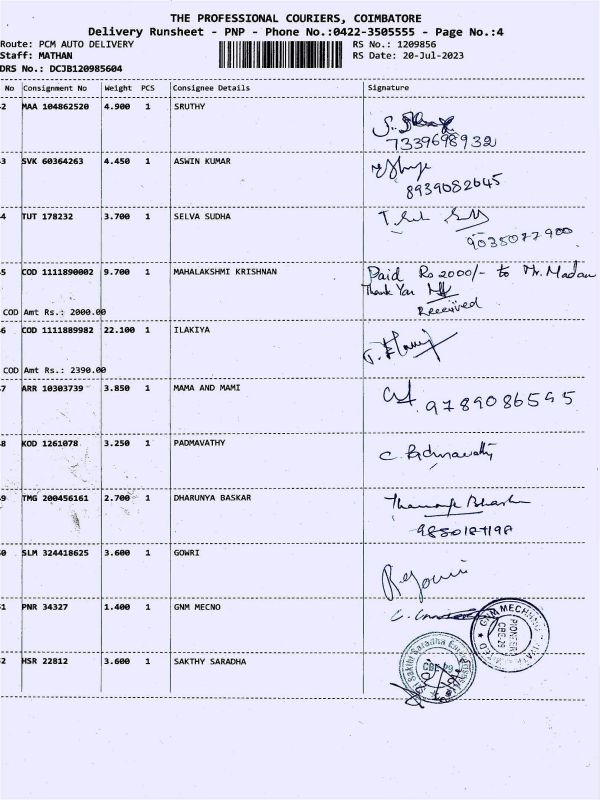 THE PROFESSIONAL COURIERS, COIMBATORE
Delivery Runsheet - PNP - Phone No.:0422-3505555 - Page No.:4
Route: PCM AUTO DELIVERY RS No.: 1209856
Staff: MATHAN RS Date: 20-Jul-2023
DRS No.: DCJB120985604
No Consignment No Weight PCS Consignee Details Signature
2 MAA 104862520 4.900 1 SRUTHY
7339698932
3 SVK 60364263 4.450 1 ASWIN KUMAR
8939082645
4 TUT 178232 3.700 1 SELVA SUDHA
9035077900
5 COD 1111890002 9.700 1 MAHALAKSHMI KRISHNAN Paid Rs 2000/- to Mr. Madan
Thank You
Received
COD Amt Rs.: 2000.00
6 COD 1111889982 22.100 1 ILAKIYA
COD Amt Rs.: 2390.00
7 ARR 10303739 3.850 1 MAMA AND MAMI
9789086595
8 KOD 1261078 3.250 1 PADMAVATHY
C. Padmavathy
9 TMG 200456161 2.700 1 DHARUNYA BASKAR
0 SLM 324418625 3.600 1 GOWRI
R. Gowri
1 PNR 34327 1.400 1 GNM MECNO
GNM MECH
PIONEER
CBE-29
2 HSR 22812 3.600 1 SAKTHY SARADHA
Sakthi Saradha
CBE-29